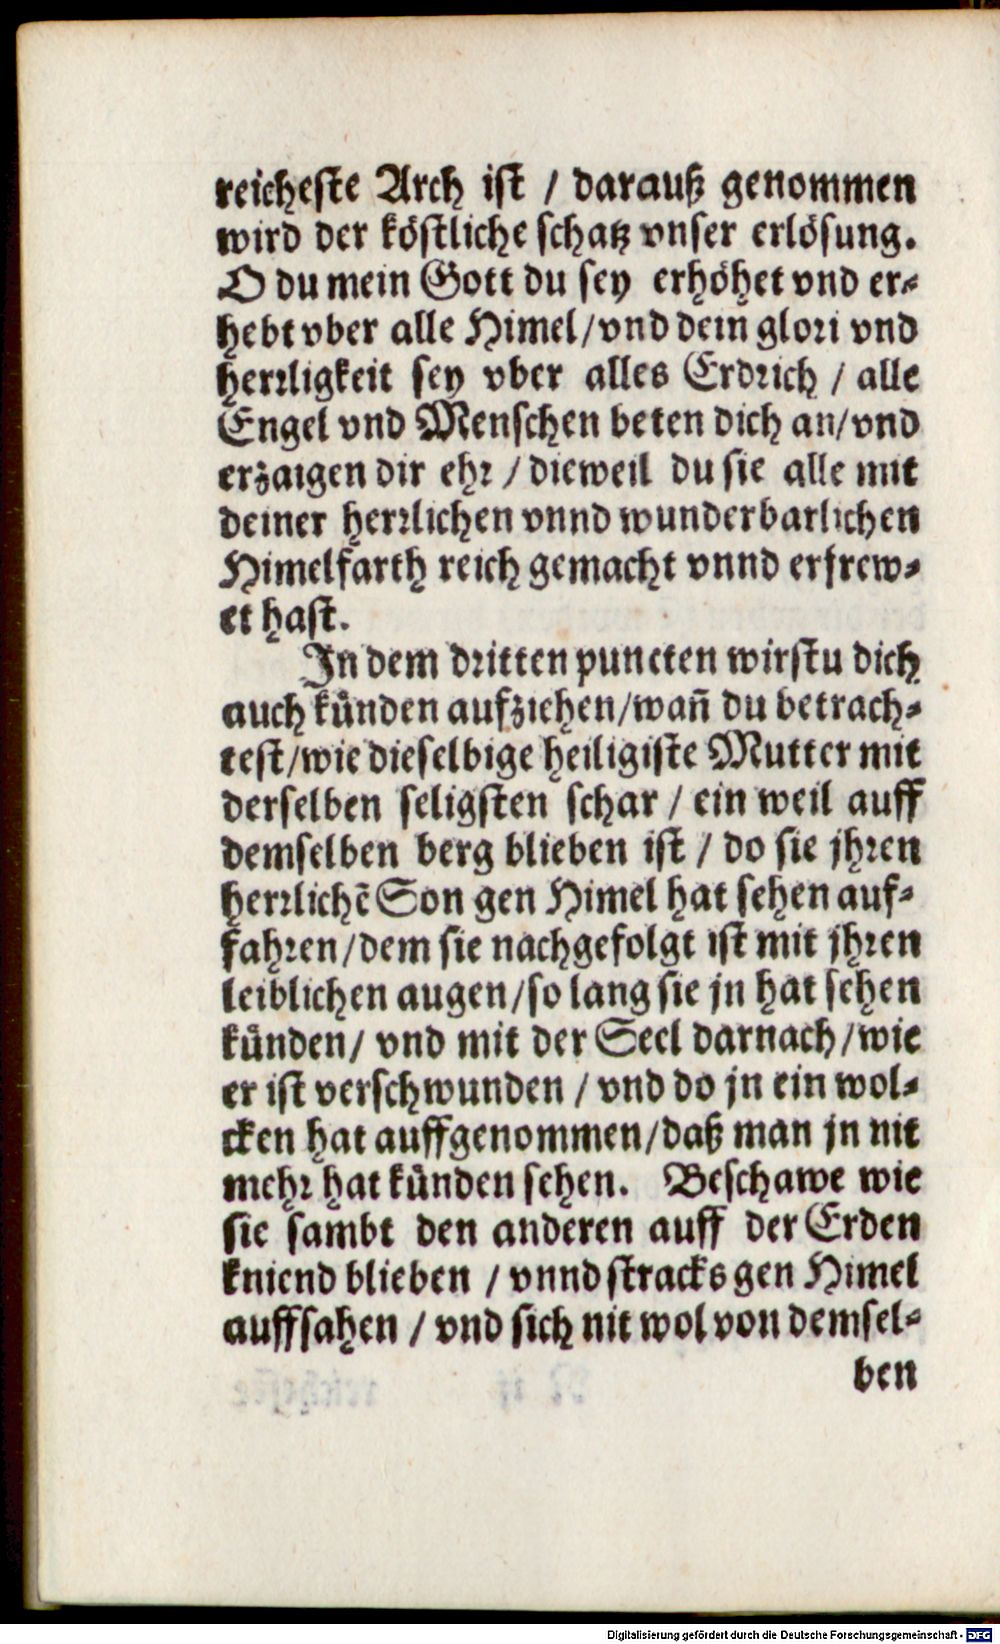 reicheste Arch ist / darauß genommen
wird der köstliche schatz vnser erlösung.
O du mein Gott du sey erhöhet vnd er-
hebt vber alle Himel/vnd dein glori vnd
herrligkeit sey vber alles Erdrich / alle
Engel vnd Menschen beten dich an/vnd
erzaigen dir ehr / dieweil du sie alle mit
deiner herrlichen vnnd wunderbarlichen
Himelfarth reich gemacht vnnd erfrew-
et hast.
In dem dritten puncten wirstu dich
auch künden aufziehen/wañ du betrach-
test/wie dieselbige heiligiste Mutter mit
derselben seligsten schar / ein weil auff
demselben berg blieben ist / do sie jhren
herrlichẽ Son gen Himel hat sehen auf-
fahren/dem sie nachgefolgt ist mit jhren
leiblichen augen/so lang sie jn hat sehen
künden/ vnd mit der Seel darnach/wie
er ist verschwunden / vnd do jn ein wol-
cken hat auffgenommen/daß man jn nit
mehr hat künden sehen. Beschawe wie
sie sambt den anderen auff der Erden
kniend blieben / vnnd stracks gen Himel
auffsahen / vnd sich nit wol von demsel-
ben
Digitalisierung gefördert durch die Deutsche Forschungsgemeinschaft - DFG